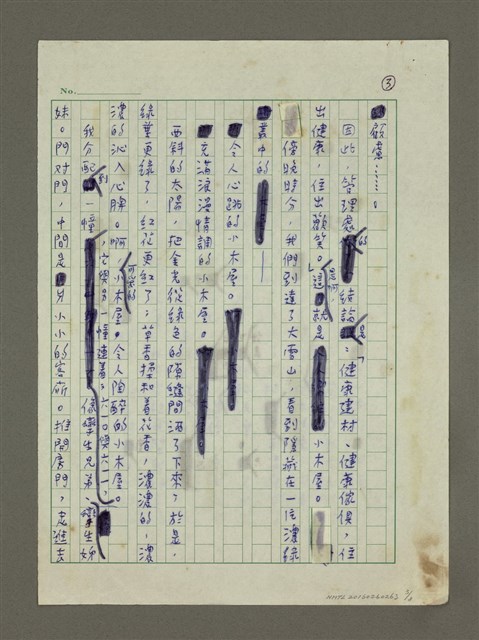 No.
③
顧慮……。
因此,管理處的結論是:「健康建材、健康傢俱,住
出健康,住出歡笑。」這就是小木屋。
傍晚時分,我們到達了大雪山,看到隱藏在一片濃綠
叢中的——
令人心跳的小木屋。
充滿浪漫情調的小木屋。
西斜的太陽,把金光從綠色的隙縫間洒了下來,於是,
綠葉更綠了,紅花更紅了;草香揉和着花香,濃濃的,濃
濃的沁入心脾。啊,可愛的小木屋。令人陶醉的小木屋。
我分配到一幢,它與另一幢連着,六一〇與六一一,像孿生兄弟、孿生姊
妹。門对門,中間是另小小的客廳。推開房門,走進去
NMTL20150260263 3/6